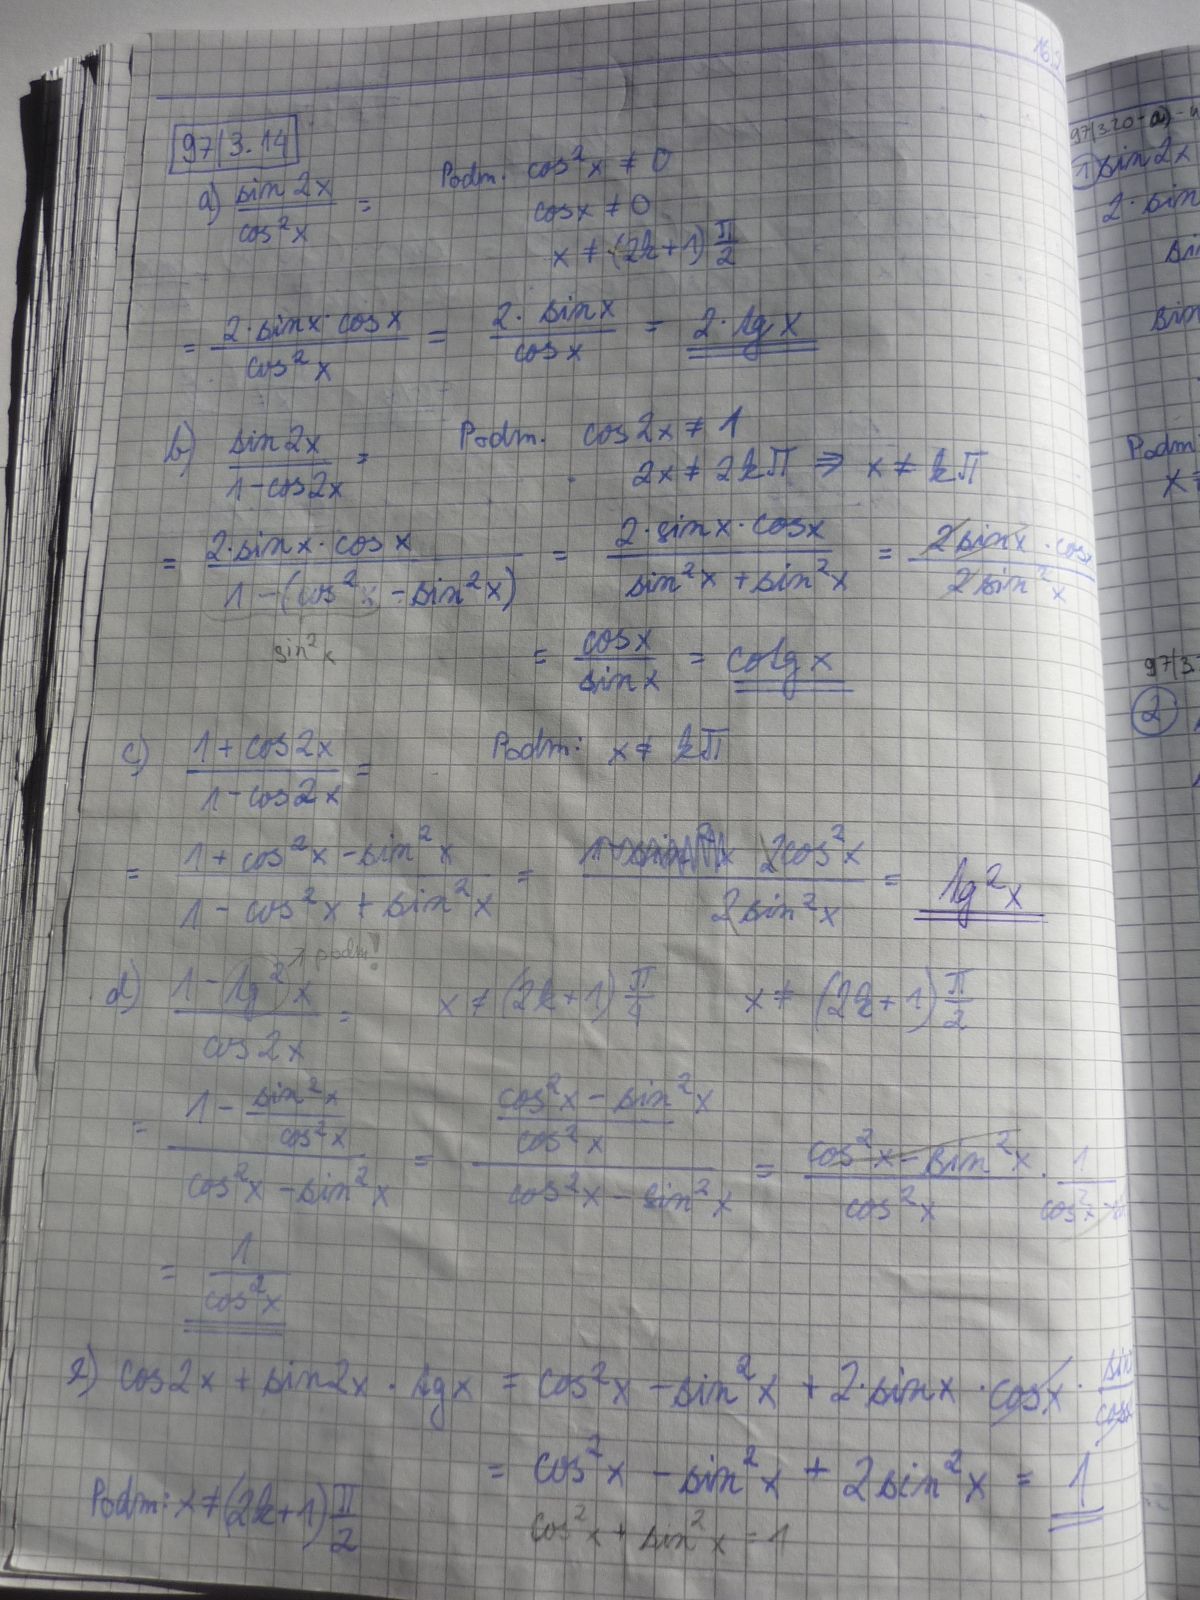 16.2
97/3.14
a) sin2x/cos²x = Podm. cos²x ≠ 0
cosx ≠ 0
x ≠ (2k+1) π/2
= 2·sinx·cosx/cos²x = 2·sinx/cosx = 2·tgx
b) sin2x/1-cos2x = Podm. cos2x ≠ 1
2x ≠ 2kπ ⇒ x ≠ kπ
= 2·sinx·cosx/1-(cos²x-sin²x) = 2·sinx·cosx/sin²x+sin²x = 2sinx·cosx/2sin²x
sin²x
= cosx/sinx = cotgx
c) 1+cos2x/1-cos2x = Podm: x ≠ kπ
= 1+cos²x-sin²x/1-cos²x+sin²x = 2cos²x/2sin²x = tg²x
↗ podm!
d) 1-tg²x/cos2x = x ≠ (2k+1) π/4 x ≠ (2k+1) π/2
= 1-sin²x/cos²x/cos²x-sin²x = cos²x-sin²x/cos²x/cos²x-sin²x = cos²x-sin²x/cos²x · 1/cos²x-
= 1/cos²x
e) cos2x+sin2x·tgx = cos²x-sin²x+2·sinx·cosx·sin/cosx
= cos²x-sin²x+2sin²x = 1
Podm: x ≠ (2k+1) π/2
cos²x+sin²x=1
97/3.20-a)-
1 sin2x
2·sin
sin
sin
Podm
x ≠
97/3.
2